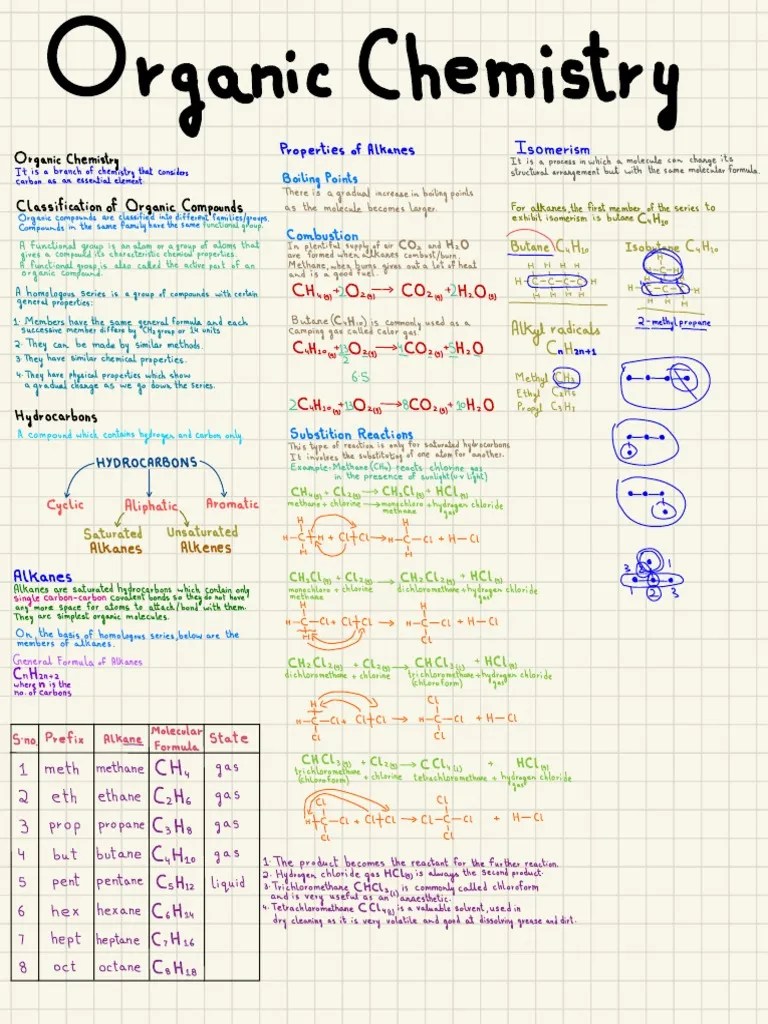 Organic Chemistry
Organic Chemistry
It is a branch of chemistry that considers
carbon as an essential element
Classification of Organic Compounds
Organic compounds are classified into different families/groups.
Compounds in the same family have the same functional group.
A functional group is an atom or a group of atoms that
gives a compound its characteristic chemical properties.
A functional group is also called the active part of an
organic compound.
A homologous series is a group of compounds with certain
general properties:
1. Members have the same general formula and each
successive member differs by CH₂ group or 14 units
2. They can be made by similar methods.
3. They have similar chemical properties.
4. They have physical properties which show
a gradual change as we go down the series.
Hydrocarbons
A compound which contains hydrogen and carbon only
HYDROCARBONS
Cyclic Aliphatic Aromatic
Saturated Unsaturated
Alkanes Alkenes
Alkanes
Alkanes are saturated hydrocarbons which contain only
single carbon-carbon covalent bonds so they do not have
any more space for atoms to attack/bond with them.
They are simplest organic molecules.
On, the basis of homologous series, below are the
members of alkanes.
General Formula of Alkanes
CnH2n+2
where n is the
no. of carbons
S.no. Prefix Alkane Molecular Formula State
1 meth methane CH₄ gas
2 eth ethane C₂H₆ gas
3 prop propane C₃H₈ gas
4 but butane C₄H₁₀ gas
5 pent pentane C₅H₁₂ liquid
6 hex hexane C₆H₁₄
7 hept heptane C₇H₁₆
8 oct octane C₈H₁₈
Properties of Alkanes
Boiling Points
There is a gradual increase in boiling points
as the molecule becomes larger.
Combustion
In plentiful supply of air CO₂ and H₂O
are formed when alkanes combust/burn.
Methane, when burns gives out a lot of heat
and is a good fuel.
CH₄(g)+2O₂(g) → CO₂(g)+2H₂O(g)
Butane (C₄H₁₀) is commonly used as a
camping gas called calor gas.
C₄H₁₀(g)+13/2O₂(g) → 4CO₂(g)+5H₂O
6.5
2C₄H₁₀(g)+13O₂(g) → 8CO₂(g)+10H₂O
Substition Reactions
This type of reaction is only for saturated hydrocarbons
It involves the substituting of one atom for another.
Example-Methane (CH₄) reacts chlorine gas
in the presence of sunlight (uv light)
CH₄(g) + Cl₂(g) → CH₃Cl(g) + HCl(g)
methane + chlorine → monochloro + hydrogen chloride
methane gas
H H
H–C–H + Cl–Cl → H–C–Cl + H–Cl
H H
CH₃Cl(g) + Cl₂(g) → CH₂Cl₂(g) + HCl(g)
monochloro + chlorine dichloromethane + hydrogen chloride
methane gas
H H
H–C–Cl + Cl–Cl → H–C–Cl + H–Cl
H Cl
CH₂Cl₂(g) + Cl₂(g) → CHCl₃(l) + HCl(g)
dichloromethane + chlorine trichloromethane + hydrogen chloride
(chloroform) gas
H Cl
H–C–Cl + Cl–Cl → H–C–Cl + H–Cl
Cl Cl
CHCl₃(l) + Cl₂(g) → CCl₄(l) + HCl(g)
trichloromethane + chlorine tetrachloromethane + hydrogen chloride
(chloroform) gas
Cl Cl
H–C–Cl + Cl–Cl → Cl–C–Cl + H–Cl
Cl Cl
1. The product becomes the reactant for the further reaction.
2. Hydrogen chloride gas HCl(g) is always the second product.
3. Trichloromethane CHCl₃(l) is commonly called chloroform
and is very useful as an anaesthetic.
4. Tetrachloromethane CCl₄(l) is a valuable solvent, used in
dry cleaning as it is very volatile and good at dissolving grease and dirt.
Isomerism
It is a process in which a molecule can change its
structural arrangement but with the same molecular formula.
For alkanes, the first member of the series to
exhibit isomerism is butane C₄H₁₀
Butane C₄H₁₀ Isobutane C₄H₁₀
H H H H
H–C–C–C–C–H
H H H H
2-methyl propane
Alkyl radicals
CnH2n+1
Methyl CH₃
Ethyl C₂H₅
Propyl C₃H₇
3 2 1
1 2 3